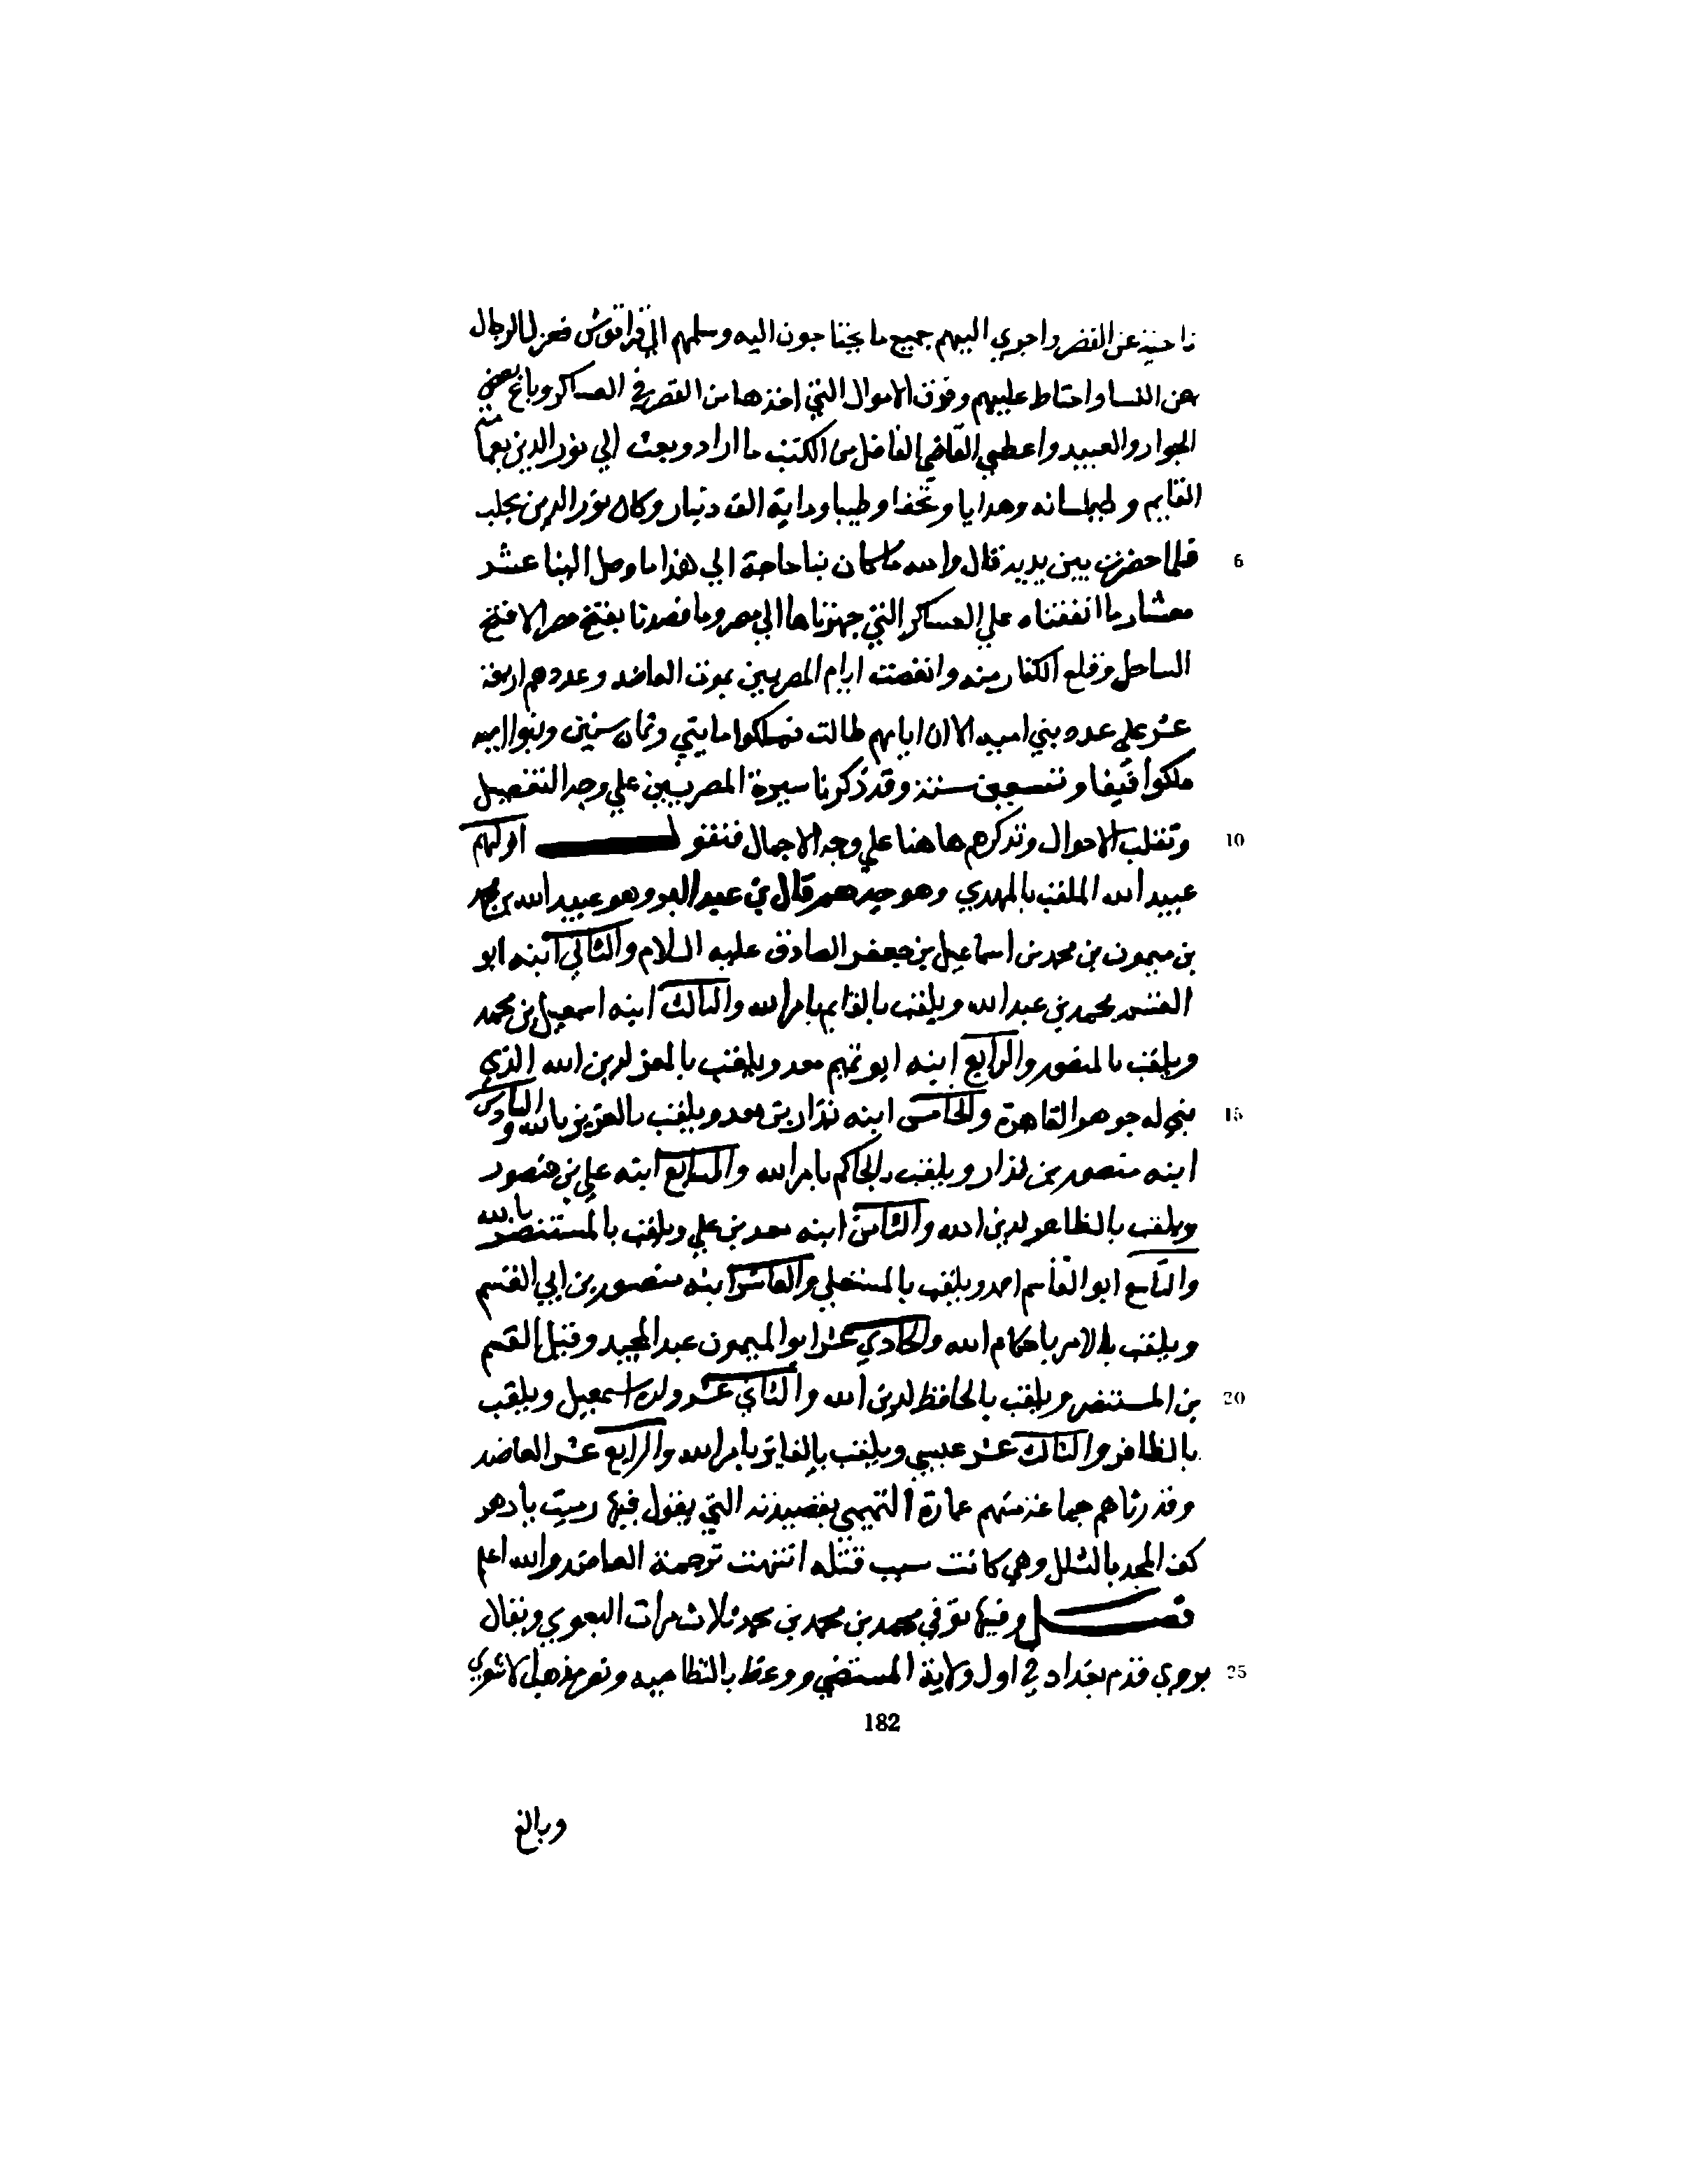 ناحية عن القصر واجري اليهم جميع ما يحتاجون اليه وسلمهم الي قراقوش فعزل الرجال
عن النسا واحتاط عليهم وفرق الاموال التي اخذها من القصر في العساكر وباع بعض
الجوار والعبيد واعطي القاضي الفاضل من الكتب ما اراد وبعث الي نور الدين بعمامة
القايم وطيلسانه وهدايا وتحفا وطيبا وماية الف دينار وكان نور الدين بحلب
فلما حضرت بين يديه قال والله ما كان بنا حاجة الي هذا ما وصل الينا عشر 5
معشار ما انفقناه علي العساكر التي جهزناها الي مصر وما قصدنا بفتح مصر الا فتح
الساحل وقلع الكفار منه وانقضت ايام المصريين بموت العاضد وعددهم اربعة
عشر علي عدد بني اميه الا ان ايامهم طالت فملكوا مايتي وثمان سنين وبنوا اميه
ملكوا نيفا وتسعين سنة وقد ذكرنا سيرة المصريين علي وجه التفصيل
وتقلب الاحوال ونذكرهم هاهنا علي وجه الاجمال فنقول اولهم 10
عبيد الله الملقب بالمهدي وهو جدهم قال بن عبد البر وهو عبيد الله بن محمد
بن ميمون بن محمد بن اسماعيل بن جعفر الصادق عليه السلام والثاني ابنه ابو
القسم محمد بن عبد الله ويلقب بالقايم بامر الله والثالث ابنه اسمعيل بن محمد
ويلقب بالمنصور والرابع ابنه ابو تميم معد ويلقب بالمعز لدين الله الذي
بني له جوهر القاهرة والخامس ابنه نزار بن معد ويلقب بالعزيز بالله والسادس 15
ابنه منصور بن نزار ويلقب بالحاكم بامر الله والسابع ابنه علي بن منصور
ويلقب بالظاهر لدين الله والثامن ابنه معد بن علي ويلقب بالمستنصر بالله
والتاسع ابو القاسم احمد ويلقب بالمستعلي والعاشر ابنه منصور بن ابي القسم
ويلقب بالامر باحكام الله والحادي عشر ابو الميمون عبد المجيد وقيل القسم
بن المستنصر ويلقب بالحافظ لدين الله والثاني عشر ولده اسمعيل ويلقب 20
بالظافر والثالث عشر عيسي ويلقب بالفايز بامر الله والرابع عشر العاضد
وقد رثاهم جماعة منهم عمارة التميمي بقصيدته التي يقول فيها رميت يا دهر
كف المجد بالشلل وهي كانت سبب قتله انتهت ترجمة العاضد والله اعلم
فصل وفيها توفي محمد بن محمد بن محمد ثلاث مرات البغوي ويقال
بروي قدم بغداد في اول ولاية المستضي ووعظ بالنظاميه ونصر مذهب الاشعري 25
182
وبالغ